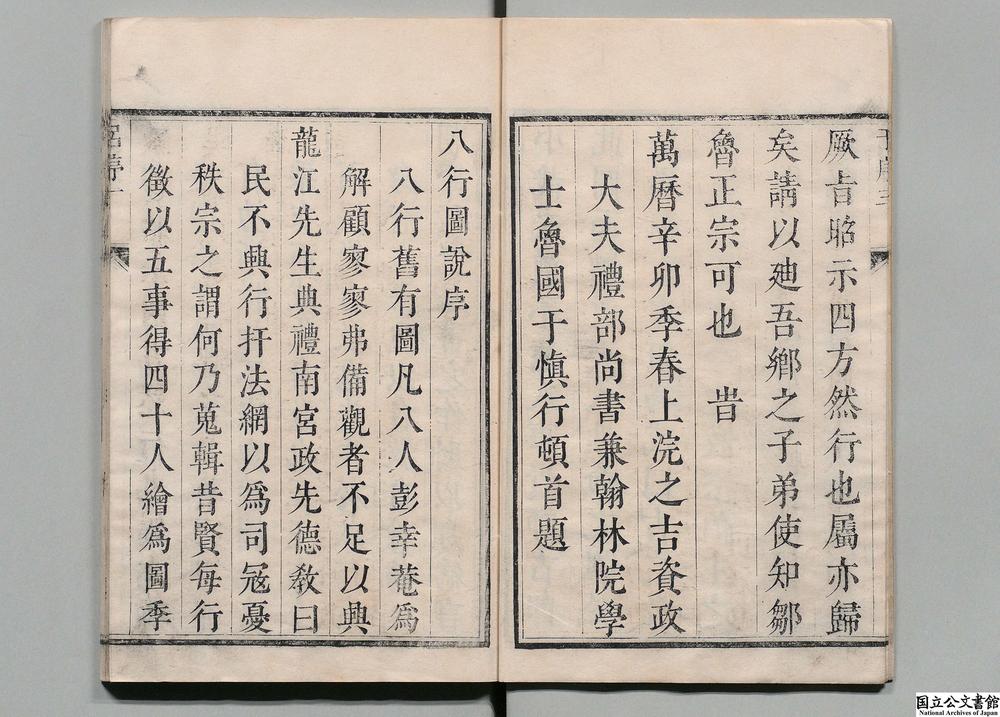 厥旨昭示四方然行也屬亦歸
矣請以廸吾鄉之子弟使知鄒
魯正宗可也　旹
萬曆辛卯季春上浣之吉資政
大夫禮部尚書兼翰林院學
士魯國于慎行頓首題
八行圖說序
八行舊有圖凡八人彭幸菴爲
解顧寥寥弗備觀者不足以興
龍江先生典禮南宮政先德敎曰
民不興行扞法網以爲司寇憂
秩宗之謂何乃蒐輯昔賢每行
徵以五事得四十人繪爲圖季
国立公文書館
National Archives of Japan